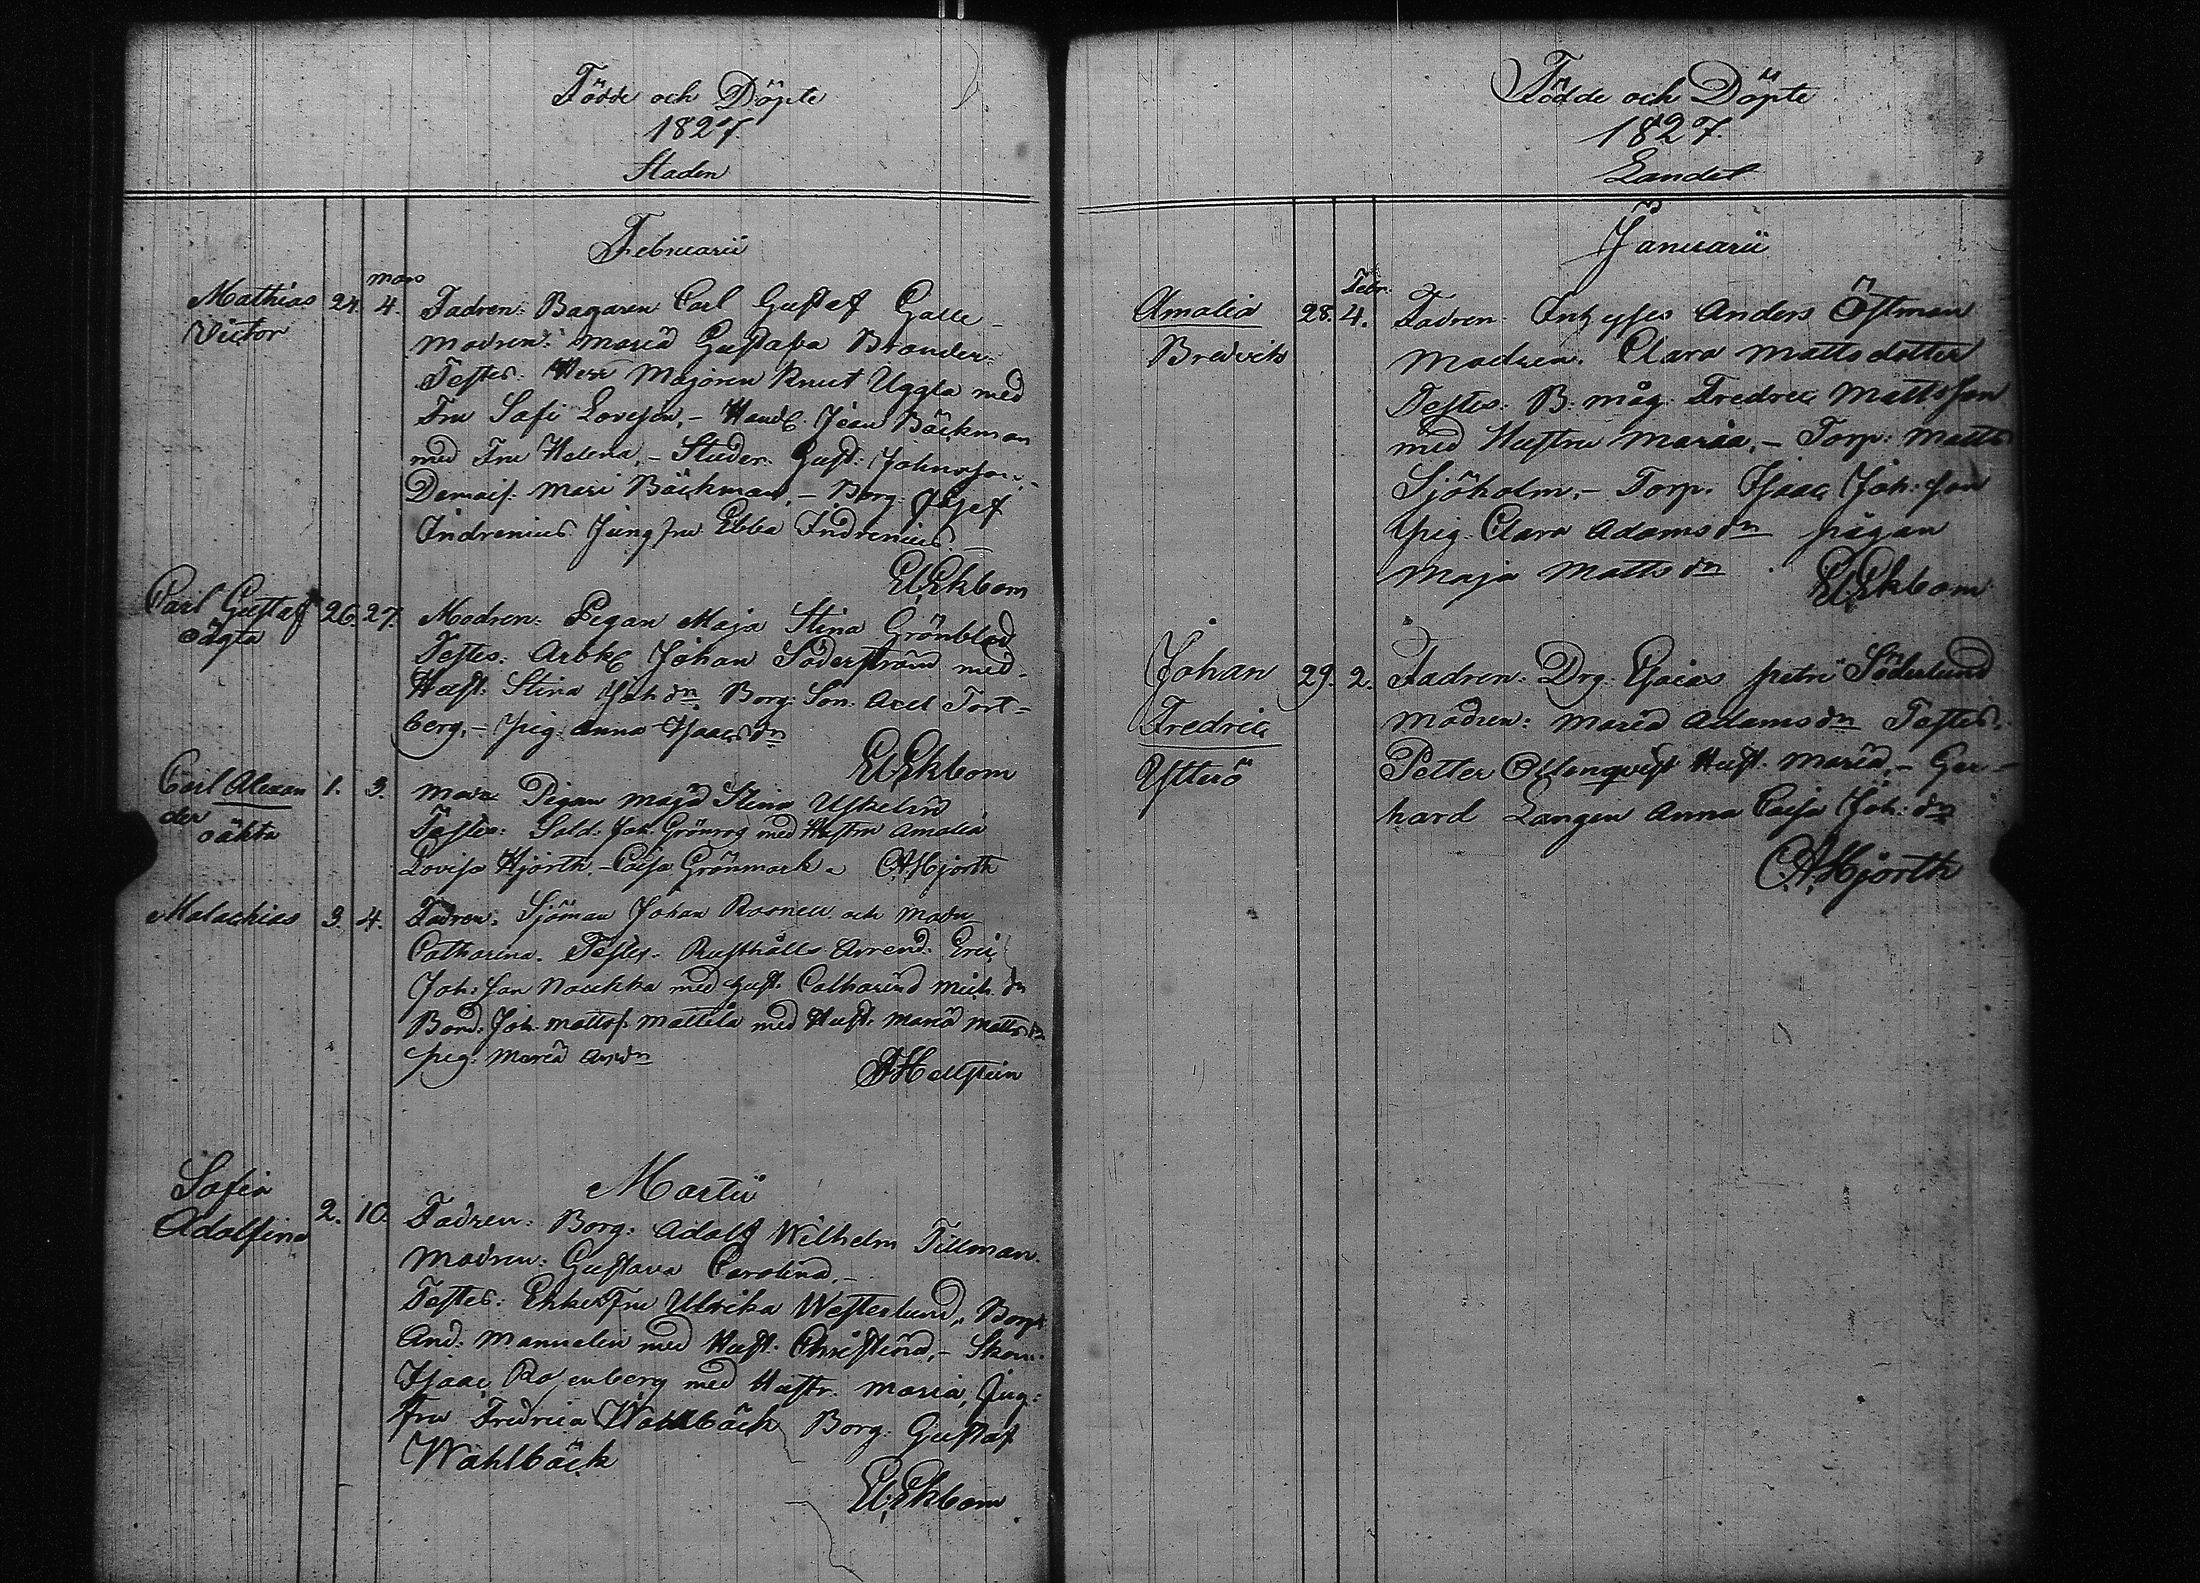 Födde och Döpte
1827.
Staden
Februarii
Mars
Mathias 24. 4. Fadren: Bagaren Carl Gustaf Galle
Victor
Modren: Maria Gustafva Brander
Testes: Herr Majoren Knut Uggla med
Fru Sofi Lovison, – Handl. Jean Bäckman
med Fru Helena, – Studer. Gust: Johnsson,
Demois: Mari Bäckman, – Borg: Josef
Indrenius. Jungfru Ebba Indrenius.
E.U.Ekbom
Carl Gustaf 26. 27. Modren: Pigan Maja Stina Grönblad
oägta
Testes: Arbk. Johan Söderström med
Hust: Stina Joh dn. Borg: Son. Axel Fort-
berg, – Pig: Anna Isaacs dn
E.U.Ekbom
Carl Alexan 1. 3. Modr. Pigan Maja Stina
der
oäkta
Testes: Sold: Joh. Grönroos med Hustru Amalia
Lovisa Hjorth. – Caisa Grönmark. C.A.Hjorth
Malachias 3. 4. Fadren: Sjöman Johan Rosnell och Modr
Catharina. Testes: Rusthålls Arrend: Eric
Joh: Son Nackka med Hust. Catharina Mich. dn
Bond: Joh. Mattss. Mattila med Hust: Maria Matts dn
Pig: Maria And dn
Hellstein
Martii
Sofia
Adolfina 2. 10. Fadren: Borg: Adolf Wilhelm Tillman.
Modren: Gustava Carolina, –
Testes: Enkefru Ulrika Westerlund, Borg:
And: Manuelin med Hust. Christina, – Skom.
Isaac Rosenberg med Hustr. Maria, Jug:
fru Fredrica Wahlbäck Borg: Gustaf
Wahlbäck
E.U.Ekbom
Födde och Döpte
1827.
Landet
Januarii
Febr.
Amalia 28. 4. Fadren. Inhyses Anders Östman
Bredvik
Modren. Clara Mattsdotter
Testes: B. måg. Fredric Mattsson
med Hustru Maria, – Torp: Matts
Sjöholm, – Torp. Isaac Joh: son
Pig. Clara Adams dn pigan
Maja Matts dn
E.U.Ekbom
Johan 29. 2. Fadren: Drg. Esaias Petri Sn Söderlund
Fredric
Modren: Maria Adams dn Testes:
Ytterö
Petter Ollonqvist Hust. Maria, – Ger-
hard Langen Anna Caisa Joh: dn
C.A.Hjorth